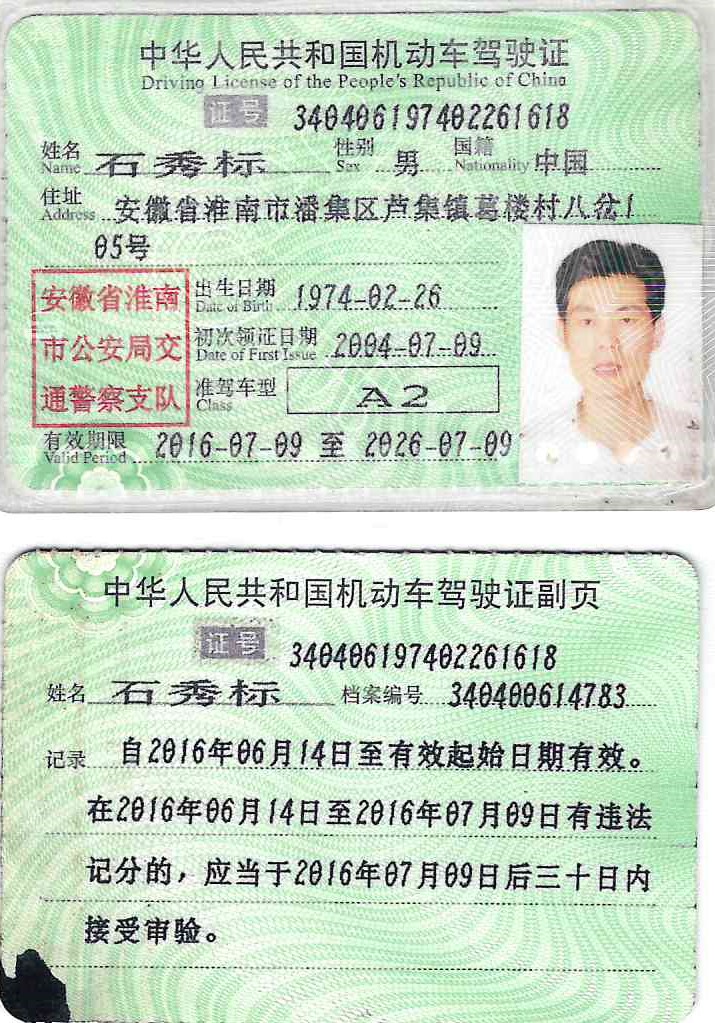 中华人民共和国机动车驾驶证
Driving License of the People's Republic of China
证号 340406197402261618
姓名 Name 石秀标 性别 Sex 男 国籍 Nationality 中国
住址 Address 安徽省淮南市潘集区芦集镇葛楼村八岔1
05号
安徽省淮南
市公安局交
通警察支队
出生日期 Date of Birth 1974-02-26
初次领证日期 Date of First Issue 2004-07-09
准驾车型 Class A2
有效期限 Valid Period 2016-07-09 至 2026-07-09
中华人民共和国机动车驾驶证副页
证号 340406197402261618
姓名 石秀标 档案编号 340400614783
记录 自2016年06月14日至有效起始日期有效。
在2016年06月14日至2016年07月09日有违法
记分的，应当于2016年07月09日后三十日内
接受审验。